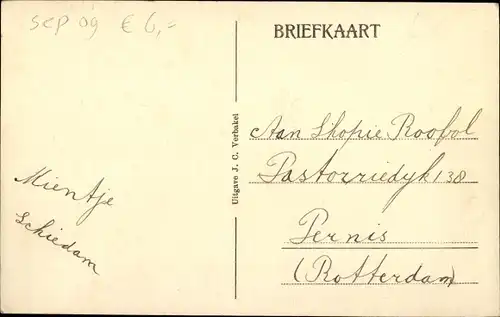 sep 09 € 6,=
BRIEFKAART
Aan Shopie Roobol
Pastorriedyk 138
Pernis
(Rotterdam)
Mientje
Schiedam
Uitgave J. C. Verbakel